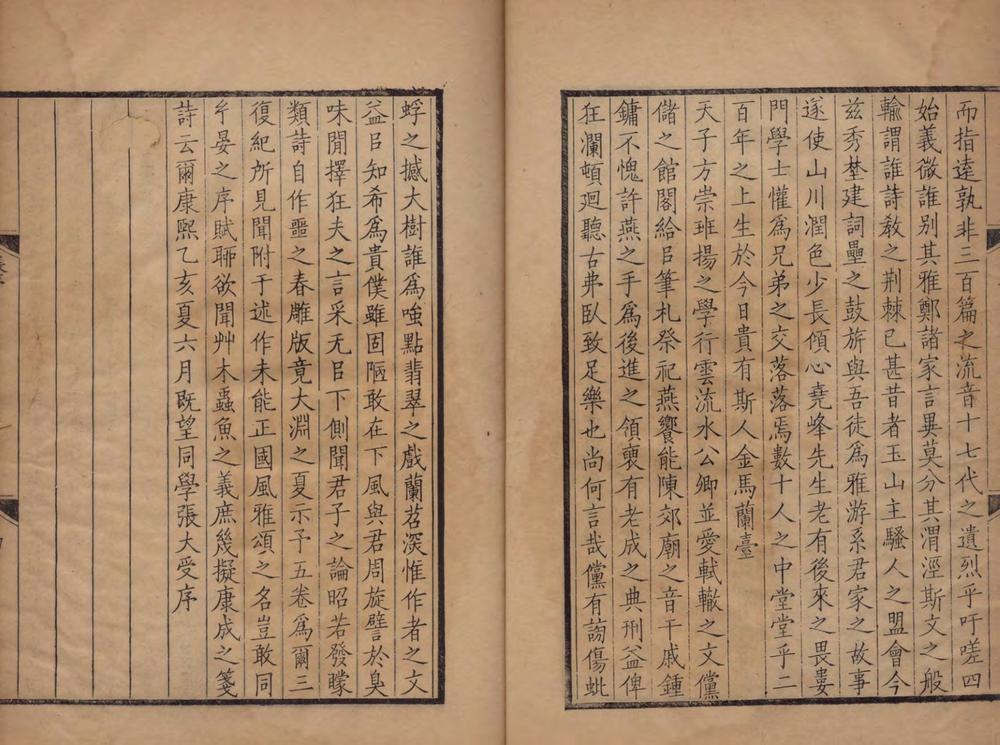 而指遠孰非三百篇之流音十七代之遺烈乎吁嗟四
始義微誰别其雅鄭諸家言異莫分其渭涇斯文之般
輸謂誰詩敎之荆棘已甚昔者玉山主騷人之盟會今
兹秀埜建詞壘之鼓旂與吾徒爲雅游系君家之故事
遂使山川潤色少長傾心堯峰先生老有後來之畏婁
門學士懽爲兄弟之交落落焉數十人之中堂堂乎二
百年之上生於今日貴有斯人金馬蘭臺
天子方崇班揚之學行雲流水公卿並愛軾轍之文儻
儲之館閣給㠯筆札祭祀燕饗能陳郊廟之音干戚鍾
鏞不愧許燕之手爲後進之領褏有老成之典刑益俾
狂瀾頓迴聽古弗卧致足樂也尚何言哉儻有謭傷蚍
蜉之撼大樹誰爲唫點翡翠之戲蘭苕㴱惟作者之文
益㠯知希爲貴僕雖固陋敢在下風與君周旋譬於臭
味閒擇狂夫之言采无㠯下側聞君子之論昭若發矇
類詩自作噩之春雕版竟大淵之夏示予五卷爲爾三
復紀所見聞附于述作未能正國風雅頌之名豈敢同
㡀晏之序賦聊欲聞艸木蟲魚之義庶幾擬康成之箋
詩云爾康熙乙亥夏六月旣望同學張大受序